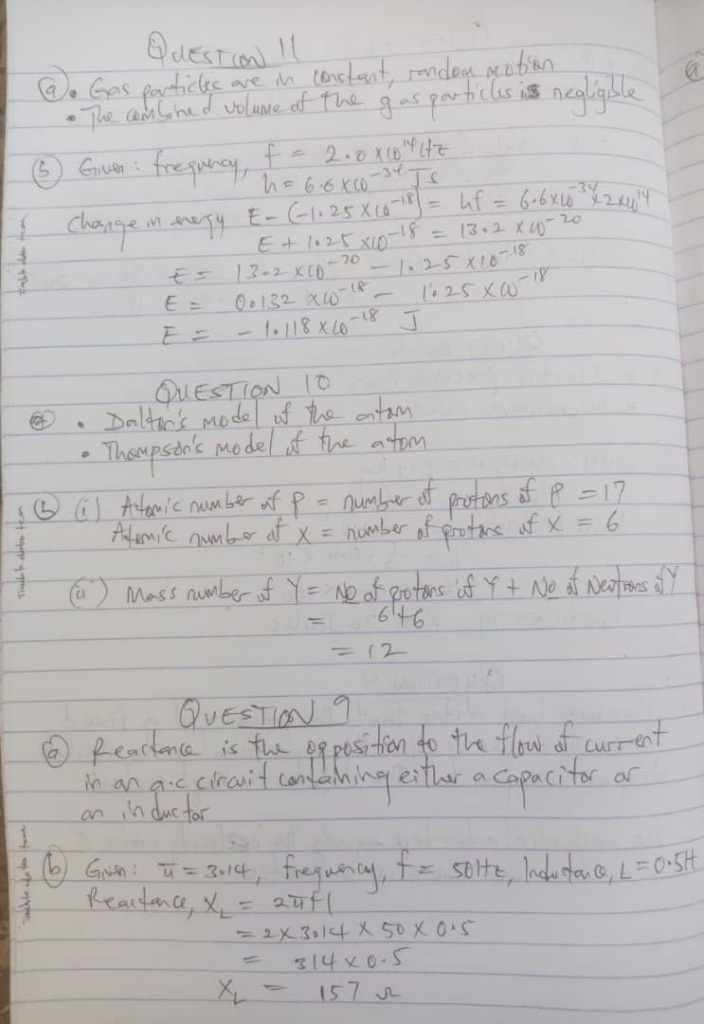 QUESTION 11
(a) • Gas particles are in constant, random motion
• The combined volume of the gas particles is negligible
(b) Given: frequency, f = 2.0 × 10¹⁴ Hz
h = 6.6 × 10⁻³⁴ Js
Change in energy E - (-1.25 × 10⁻¹⁸) = hf = 6.6 × 10⁻³⁴ × 2 × 10¹⁴
E + 1.25 × 10⁻¹⁸ = 13.2 × 10⁻²⁰
E = 13.2 × 10⁻²⁰ - 1.25 × 10⁻¹⁸
E = 0.132 × 10⁻¹⁸ - 1.25 × 10⁻¹⁸
E = -1.118 × 10⁻¹⁸ J
QUESTION 10
(a) • Dalton's model of the atom
• Thompson's model of the atom
(b) (i) Atomic number of P = number of protons of P = 17
Atomic number of X = number of protons of X = 6
(ii) Mass number of Y = No of protons of Y + No of Neutrons of Y
= 6+6
= 12
QUESTION 9
(a) Reactance is the opposition to the flow of current
in an a.c circuit containing either a capacitor or
an inductor
(b) Given: π = 3.14, frequency, f = 50Hz, Inductance, L = 0.5H
Reactance, X_L = 2πfl
= 2 × 3.14 × 50 × 0.5
= 314 × 0.5
X_L = 157 Ω